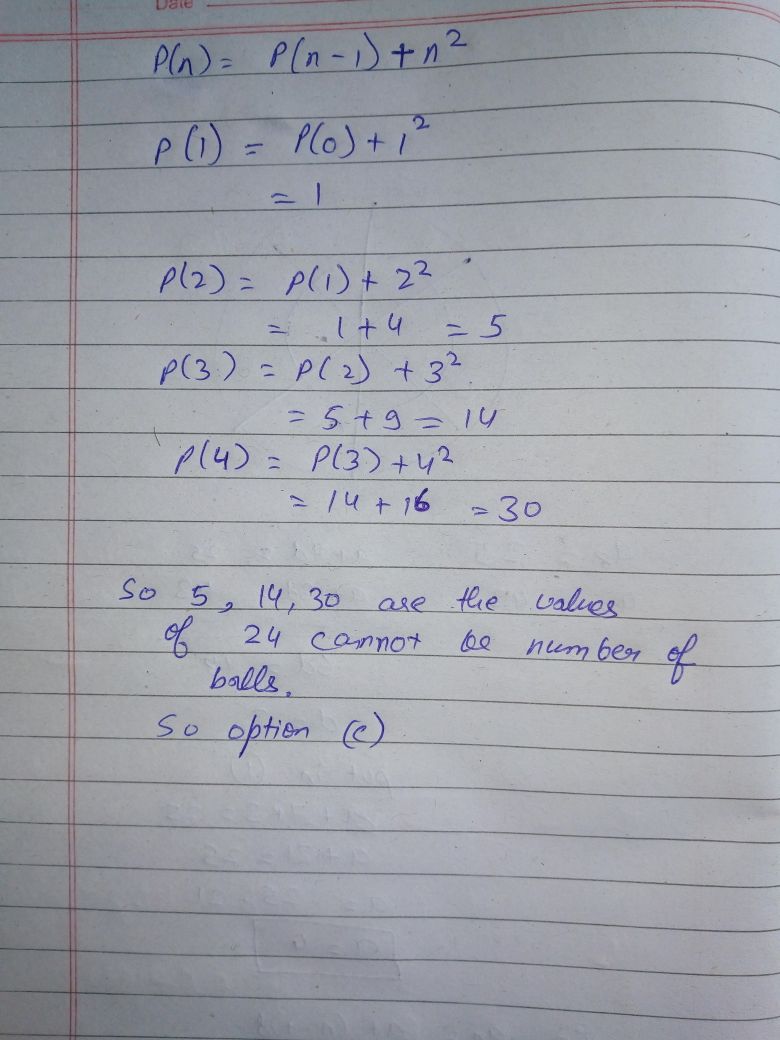 Date
P(n) = P(n-1) + n²
P(1) = P(0) + 1²
= 1
P(2) = P(1) + 2²
= 1 + 4 = 5
P(3) = P(2) + 3²
= 5 + 9 = 14
P(4) = P(3) + 4²
= 14 + 16 = 30
So 5, 14, 30 are the values
of 24 cannot be number of
balls.
So option (c)